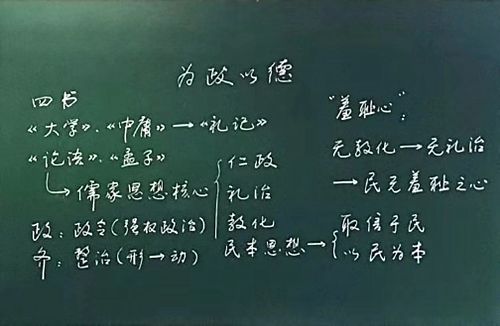 为政以德
四书
《大学》、《中庸》→《礼记》
《论语》、《孟子》
↳儒家思想核心{仁政
礼治
教化
民本思想→{取信于民
以民为本
政：政令(强权政治)
齐：整治(形→动)
"羞耻心"：
无教化→无礼治
→民无羞耻之心